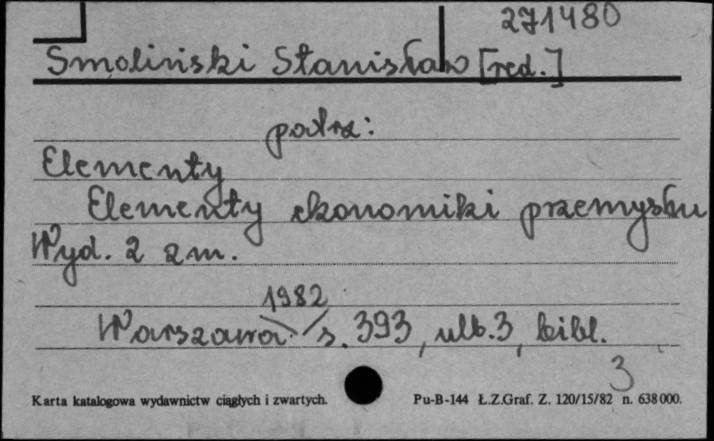 271480
Smoliński Stanisław [red.]
patrz:
Elementy
Elementy ekonomiki przemysłu
Wyd. 2 zm.
1982
Warszawa s. 393, ulb. 3, bibl.
3
Karta katalogowa wydawnictw ciągłych i zwartych. Pu-B-144 Ł.Z.Graf. Z. 120/15/82 n. 638 000.